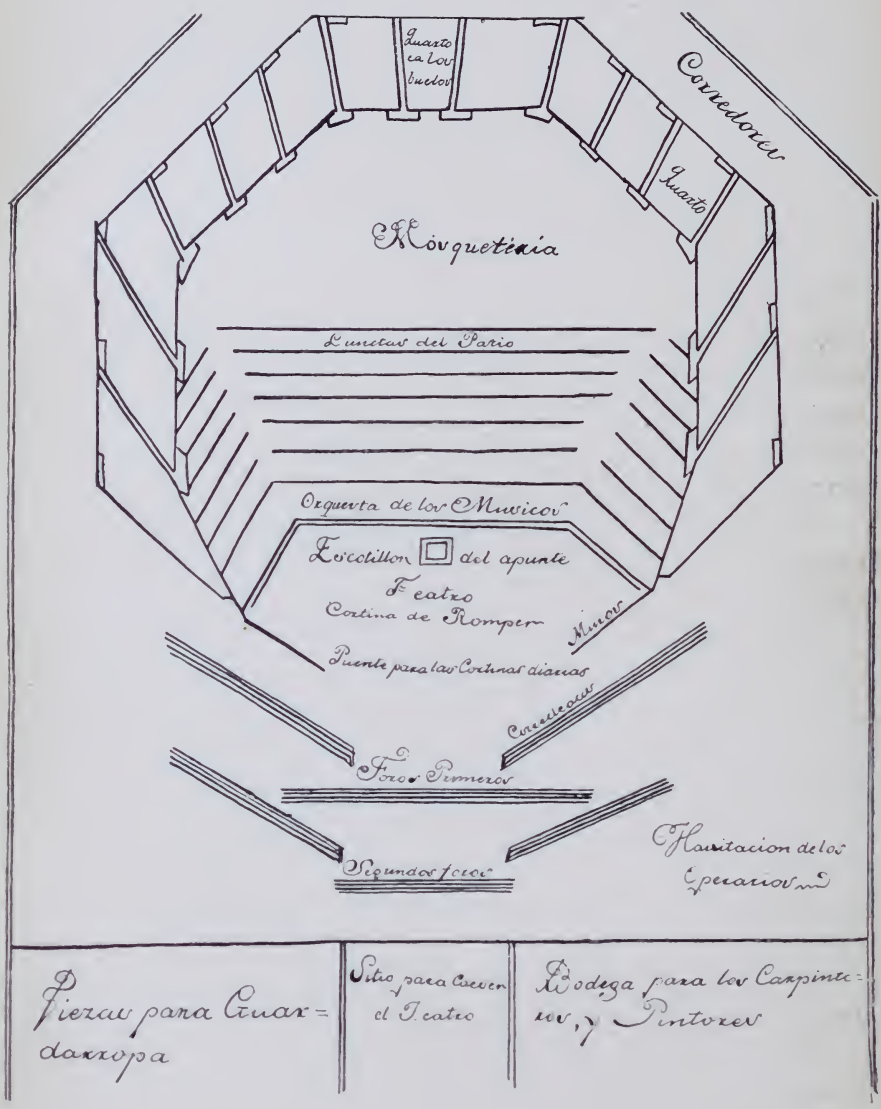 Quarto
ca los
buelos
Corredores
Quarto
Mosqueteria
Lunetas del Patio
Orquesta de los Musicos
Escotillon del apunte
Teatro
Cortina de Romper
Muros
Puente para las Cortinas diarias
Foros Primeros
Segundos foros
Havitacion de los
Operarios
Piezas para Guar=
darropa
Sitio para
el Teatro
Bodega para los Carpinte=
ros, y Pintores